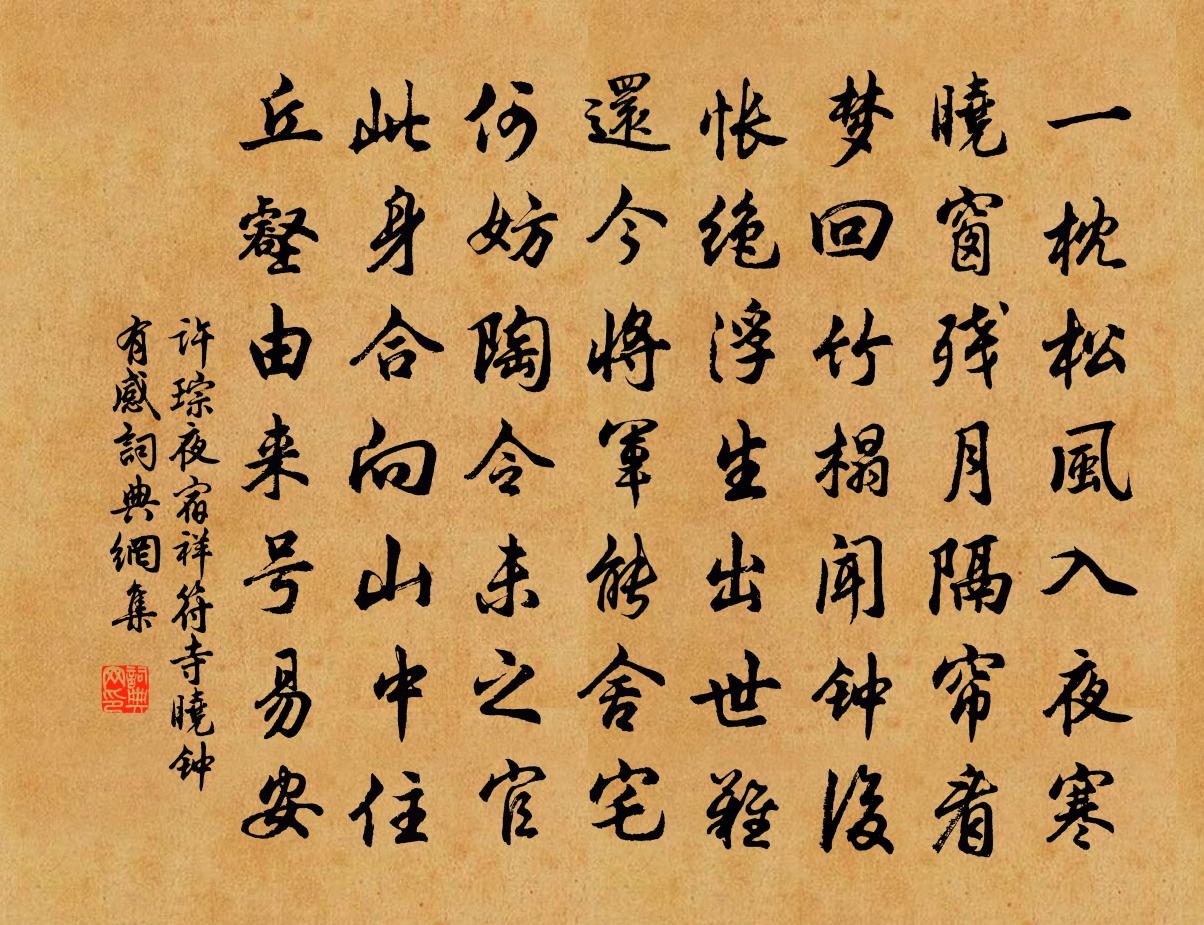 一枕松風入夜寒
曉窗残月隔帘看
梦回竹榻闻钟後
怅绝浮生出世難
還今將軍能舍宅
何妨陶令未之官
此身合向山中住
丘壑由来号易安
许琮夜宿祥符寺曉钟
有感詞典網集
詞典网印